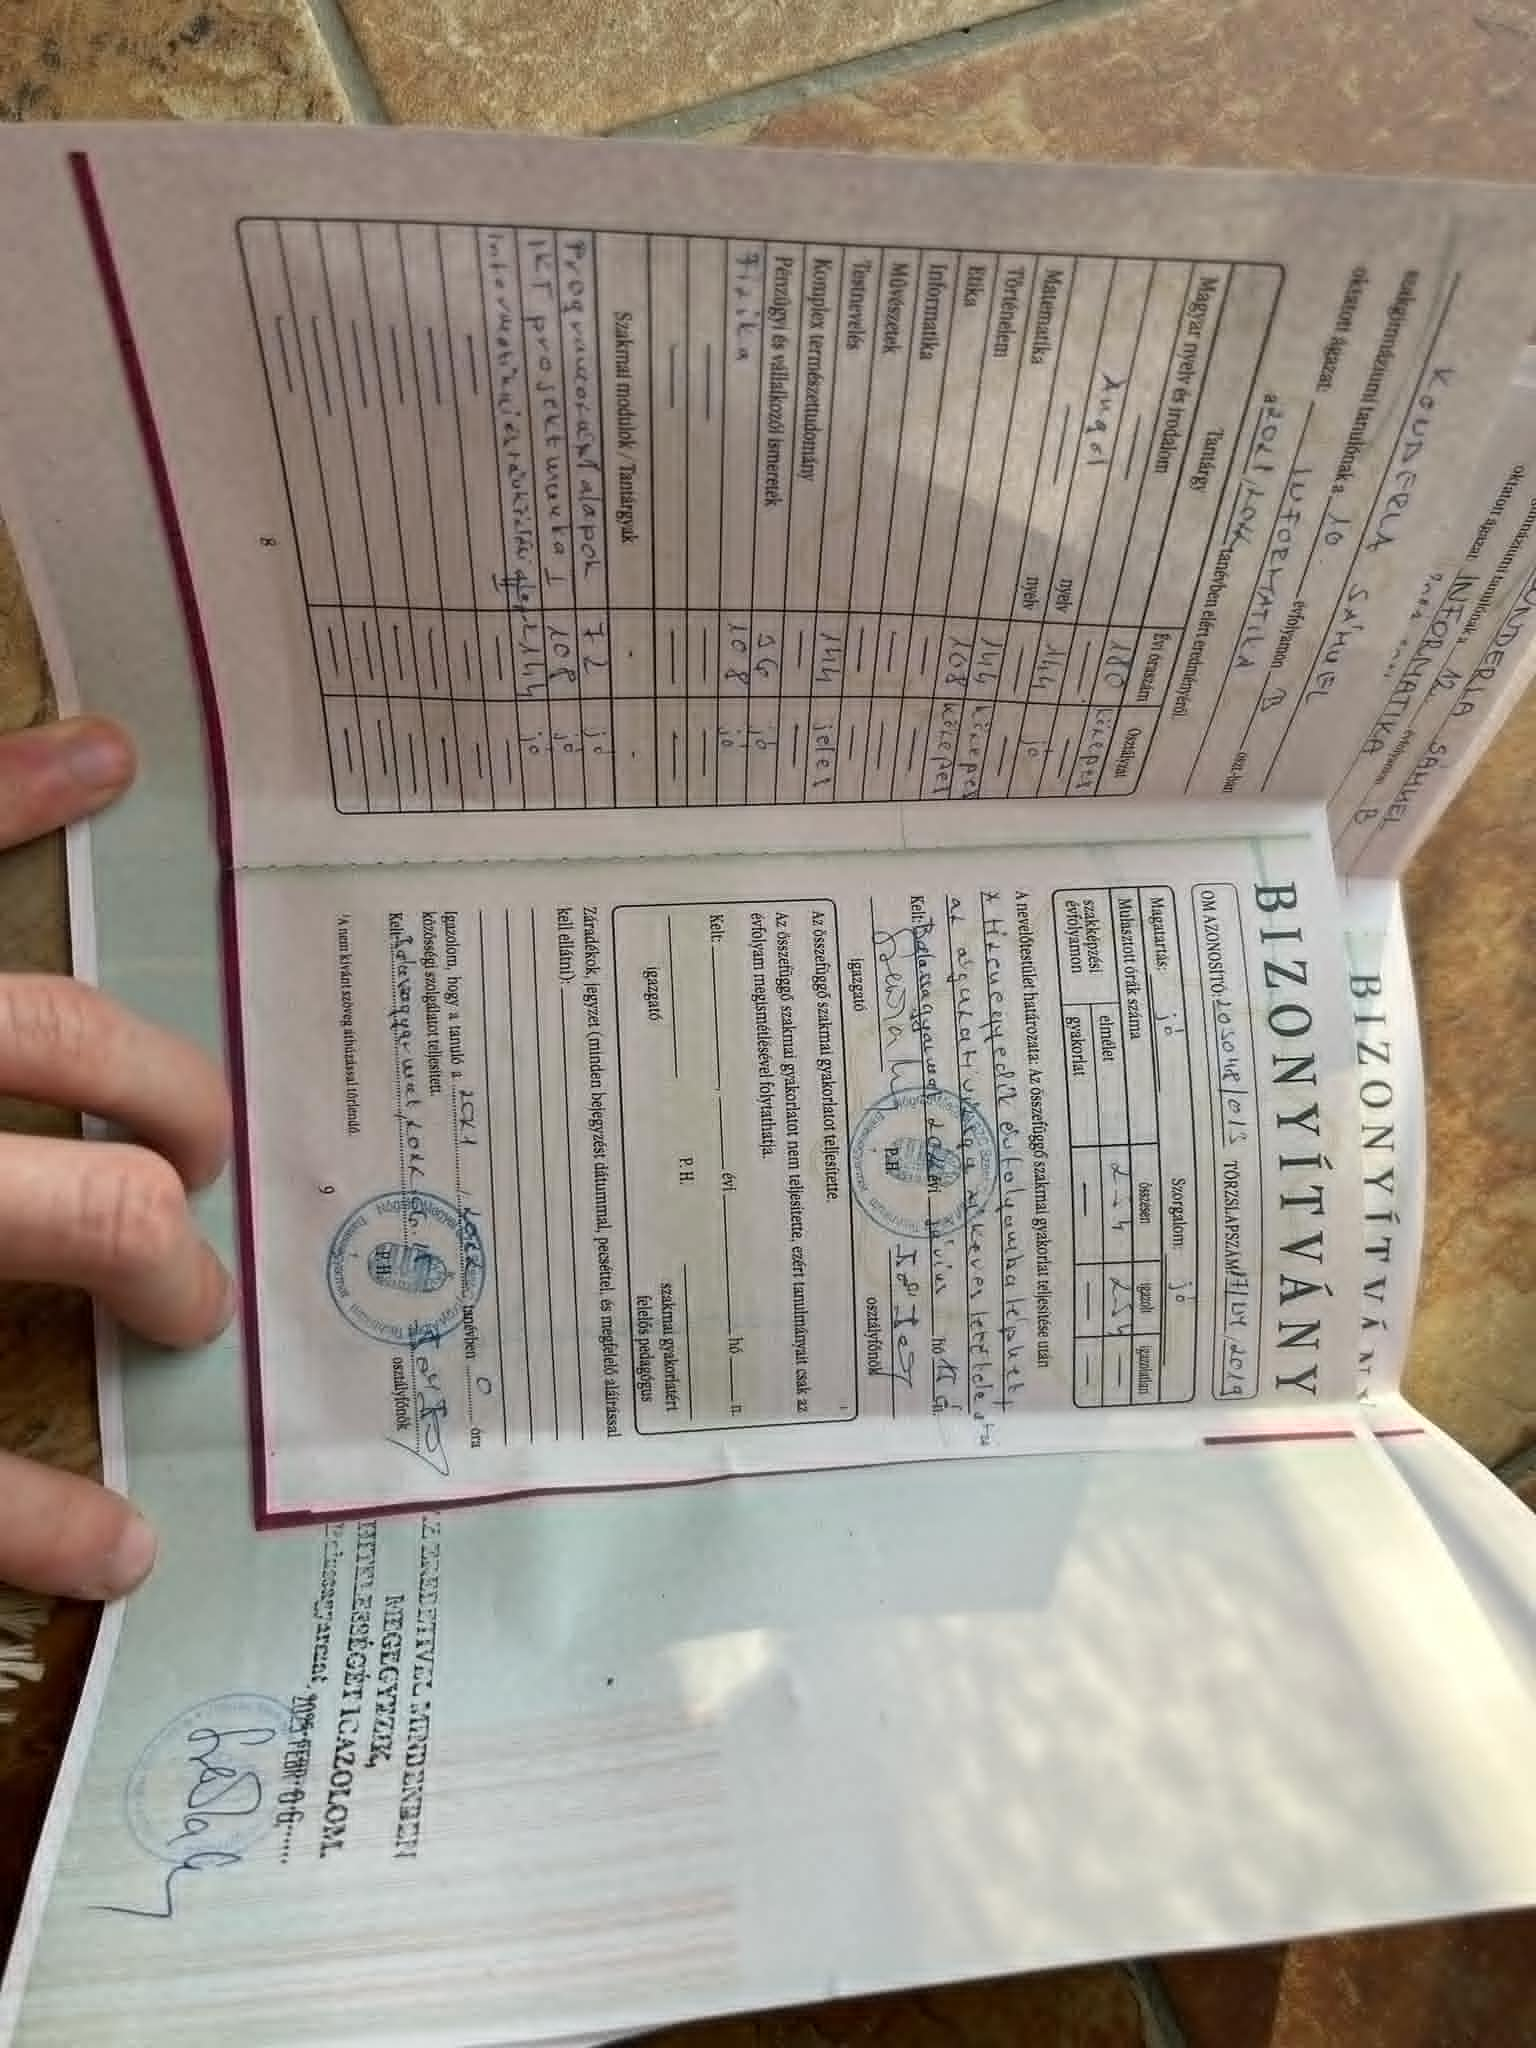 KONDERLA SÁMUEL
szakgimnáziumi tanulónak a 10 évfolyamon B oszt.-ban
oktatott ágazat: INFORMATIKA
a 2021/2022 tanévben elért eredményéről
Tantárgy Évi óraszám Osztályzat
Magyar nyelv és irodalom 180 közepes
— nyelv — —
Angol nyelv 144 jó
— — —
Matematika 144 közepes
Történelem 108 közepes
Etika — —
Informatika — —
Művészetek — —
Testnevelés 144 jeles
Komplex természettudomány — —
Pénzügyi és vállalkozói ismeretek 36 jó
Fizika 108 jó
— — —
— — —
Szakmai modulok / Tantárgyak - -
Programozási alapok 72 jó
IKT projektmunka I 108 jó
144 jó
— — —
— — —
— — —
— — —
— — —
— — —
8
BIZONYÍTVÁNY
OM AZONOSÍTÓ: 203048/013 TÖRZSLAPSZÁM: /2019
Magatartás: jó Szorgalom: jó
Mulasztott órák száma összesen igazolt igazolatlan
szakképzési évfolyamon elmélet 254 —
gyakorlat — — —
A nevelőtestület határozata: Az összefüggő szakmai gyakorlat teljesítése után
a tizenegyedik évfolyamba léphet
az ágazati vizsga sikeres letétele
Kelt: Balassagyarmat, 2022 évi június hó
igazgató P.H. osztályfőnök
Az összefüggő szakmai gyakorlatot teljesítette.
Az összefüggő szakmai gyakorlatot nem teljesítette, ezért tanulmányait csak az
évfolyam megismétlésével folytathatja.
Kelt: , évi hó n.
P.H.
igazgató szakmai gyakorlatért
felelős pedagógus
Záradékok, jegyzet (minden bejegyzést dátummal, pecséttel, és megfelelő aláírással
kell ellátni):
Igazolom, hogy a tanuló a 2021 / 2022 tanévben 0 óra
közösségi szolgálatot teljesített.
Kelt: Balassagyarmat, 2022. P.H. osztályfőnök
¹A nem kívánt szöveg áthúzással törlendő.
9
BIZONYÍTVÁN
KONDERLA SÁMUEL
tanulónak a 12 évfolyamon B
oktatott ágazat: INFORMATIKA
AZ EREDETIVEL MINDENBEN
MEGEGYEZIK,
HITELESSÉGÉT IGAZOLOM.
Balassagyarmat, 2025 FEBR 06.